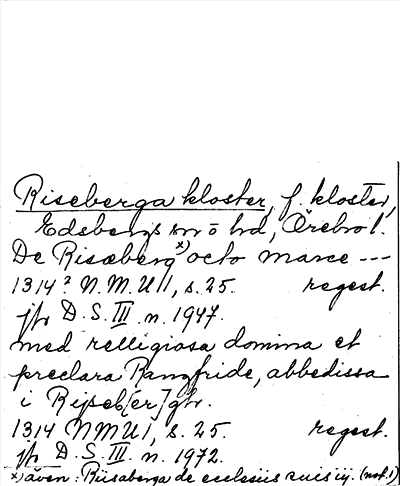 Riseberga kloster, f. kloster,
Edsbergs sn o hd, Örebro l.
De Risæberg x) octo marce ---
1314? N.M.U 1, s. 25. regest.
jfr D.S. III n. 1947.
med relligiosa domina et
preclara Ramfride, abbedissa
i Riseb[er]gh.
1314 NMU 1, s. 25. regest.
jfr D.S. III n. 1972.
x) även: Riisaberga de ecclesiis suis iij. (not. 1)